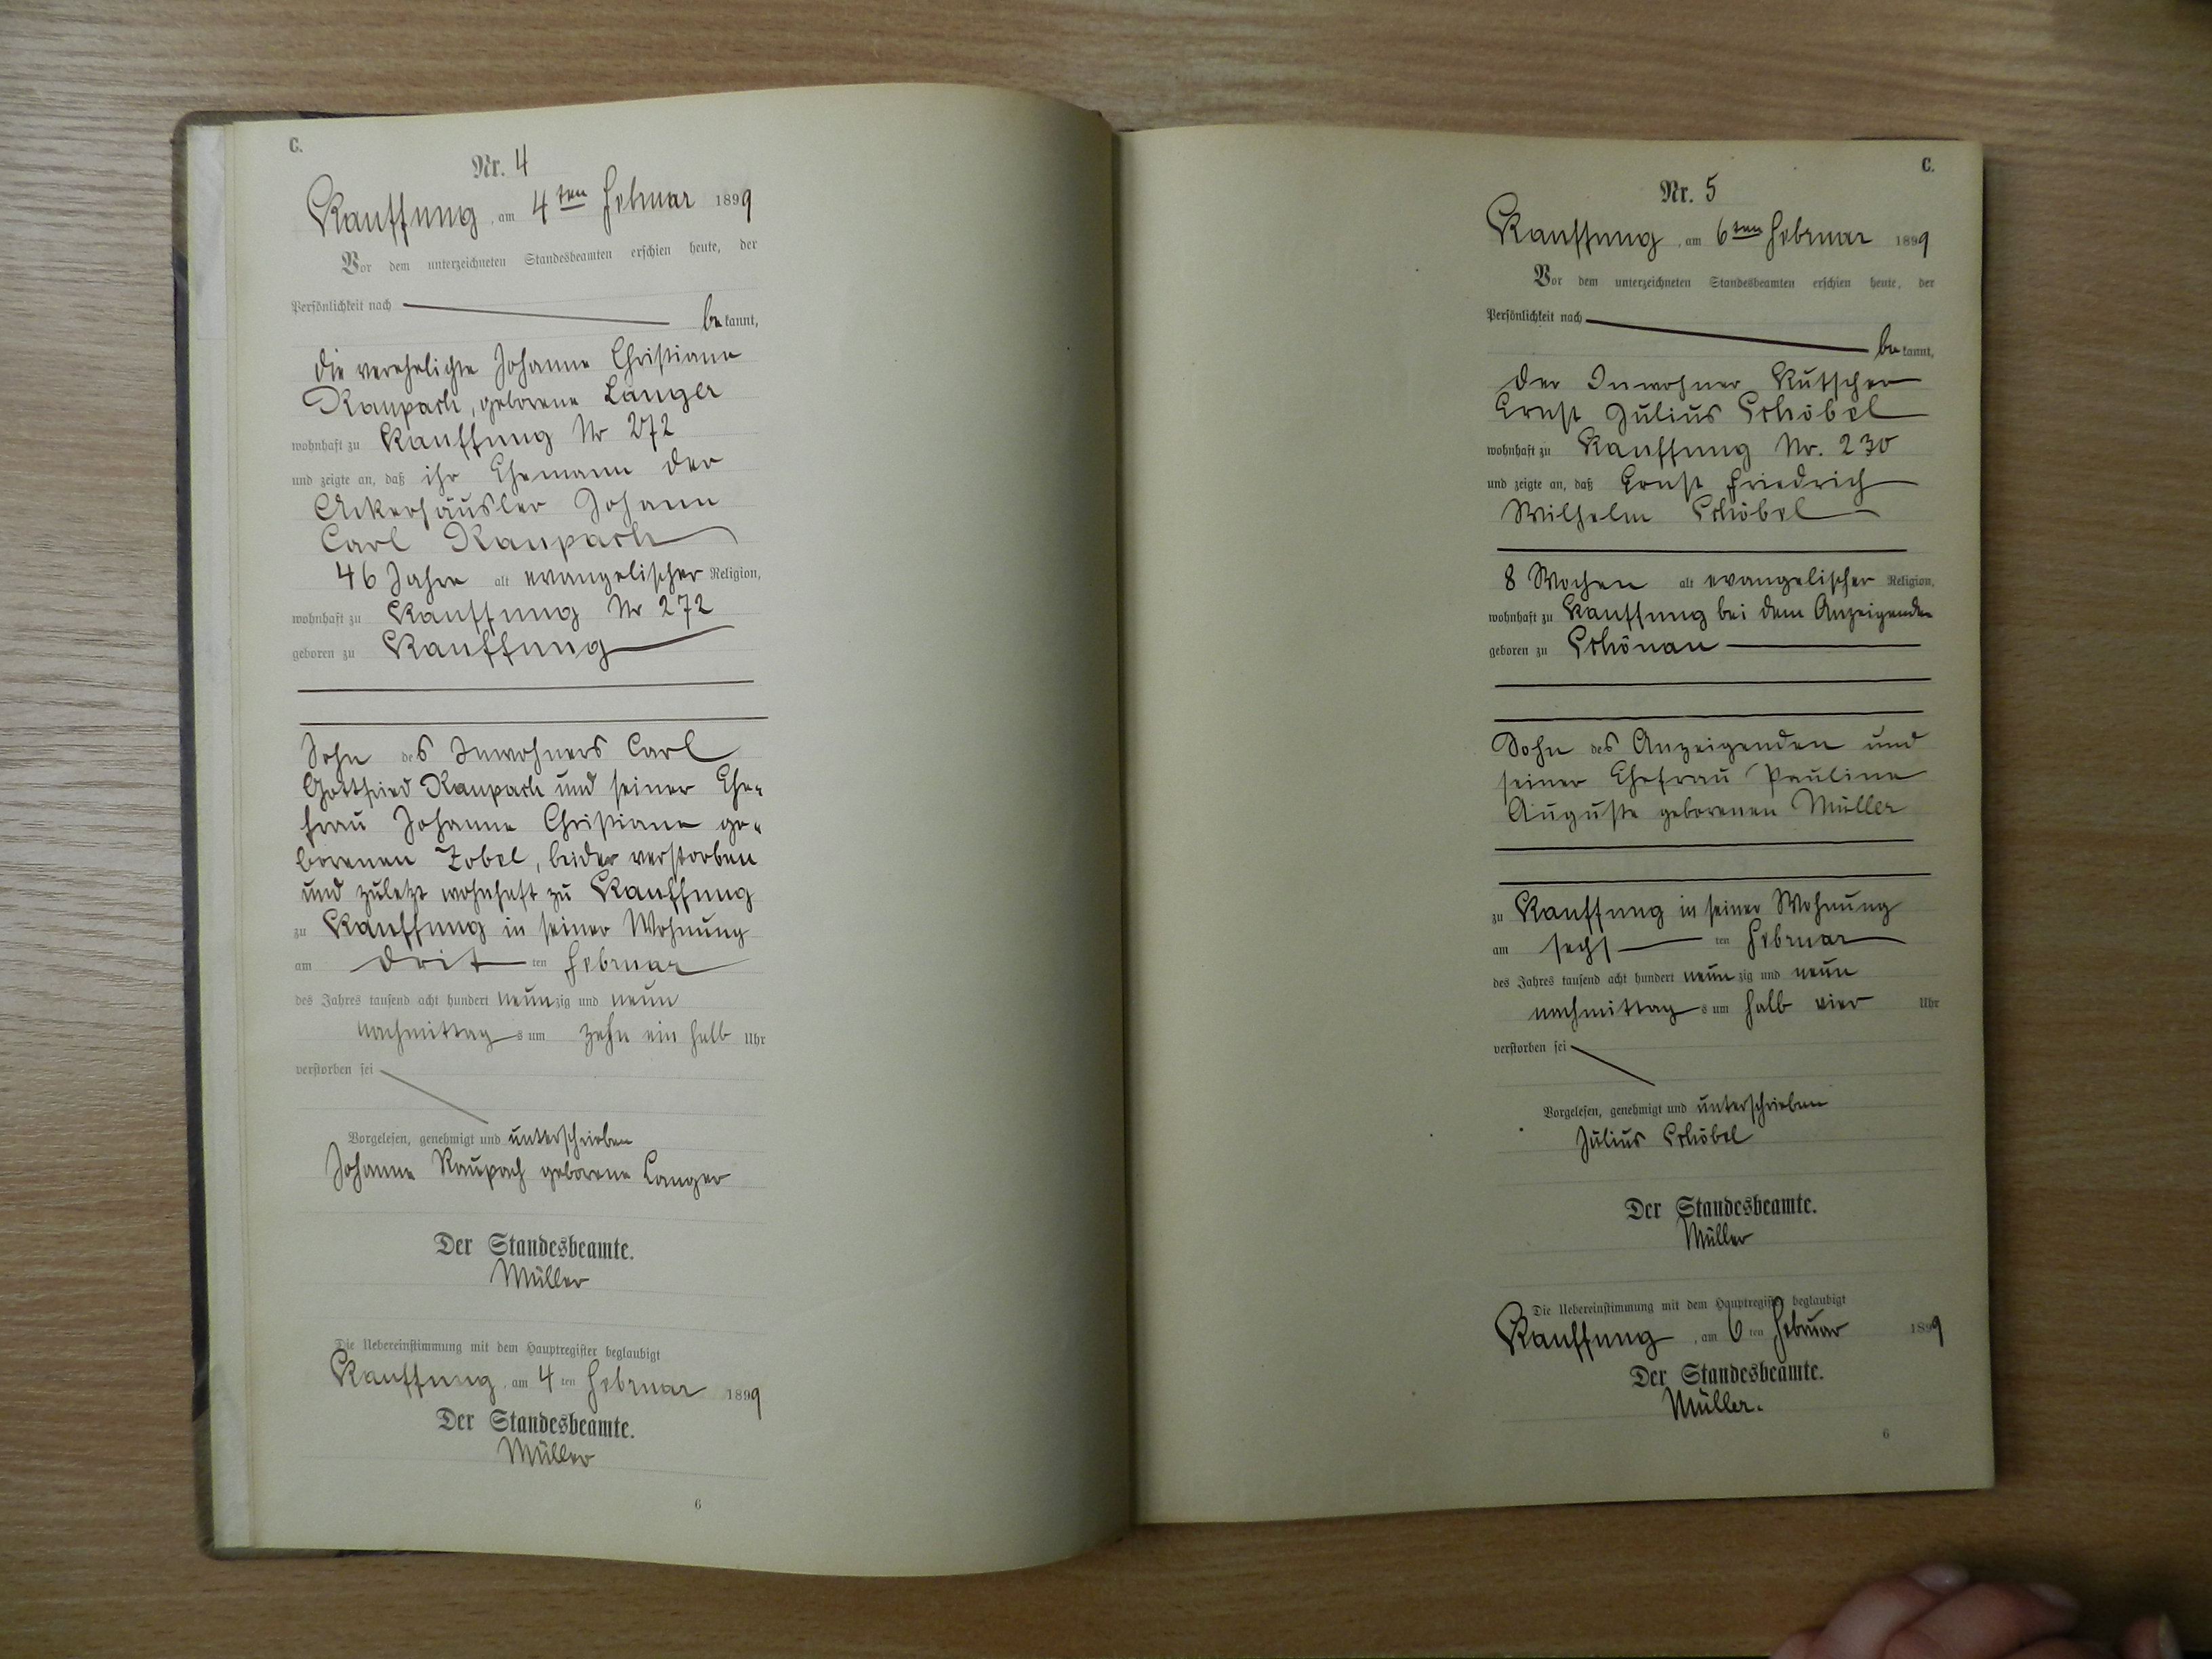 C.
Nr. 4
Kauffung, am 4ten Februar 1899
Vor dem unterzeichneten Standesbeamten erschien heute, der
Persönlichkeit nach
bekannt,
die verehelichte Johanne Christiane
Raupach, geborene Langer
wohnhaft zu Kauffung Nr 272
und zeigte an, daß ihr Ehemann der
Ackerhäusler Johann
Carl Raupach
46 Jahre alt evangelischer Religion,
wohnhaft zu Kauffung Nr 272
geboren zu Kauffung
Sohn des Inwohners Carl
Gottfried Raupach und seiner Ehe-
frau Johanne Christiane ge-
borenen Zobel, beider verstorben
und zuletzt wohnhaft zu Kauffung
zu Kauffung in seiner Wohnung
am dritten Februar
des Jahres tausend acht hundert neunzig und neun
nachmittags um zehn ein halb Uhr
verstorben sei
Vorgelesen, genehmigt und unterschrieben
Johanne Raupach geborene Langer
Der Standesbeamte.
Müller
Die Uebereinstimmung mit dem Hauptregister beglaubigt
Kauffung, am 4ten Februar 1899
Der Standesbeamte.
Müller
6
C.
Nr. 5
Kauffung, am 6ten Februar 1899
Vor dem unterzeichneten Standesbeamten erschien heute, der
Persönlichkeit nach
bekannt,
der Inwohner Kutscher
Ernst Julius Schöbel
wohnhaft zu Kauffung Nr. 230
und zeigte an, daß Ernst Friedrich
Wilhelm Schöbel
8 Wochen alt evangelischer Religion,
wohnhaft zu Kauffung bei dem Anzeigenden
geboren zu Schönau
Sohn des Anzeigenden und
seiner Ehefrau Pauline
Auguste geborenen Müller
zu Kauffung in seiner Wohnung
am sechsten Februar
des Jahres tausend acht hundert neunzig und neun
nachmittags um halb vier Uhr
verstorben sei
Vorgelesen, genehmigt und unterschrieben
Julius Schöbel
Der Standesbeamte.
Müller
Die Uebereinstimmung mit dem Hauptregister beglaubigt
Kauffung, am 6ten Februar 1899
Der Standesbeamte.
Müller.
6